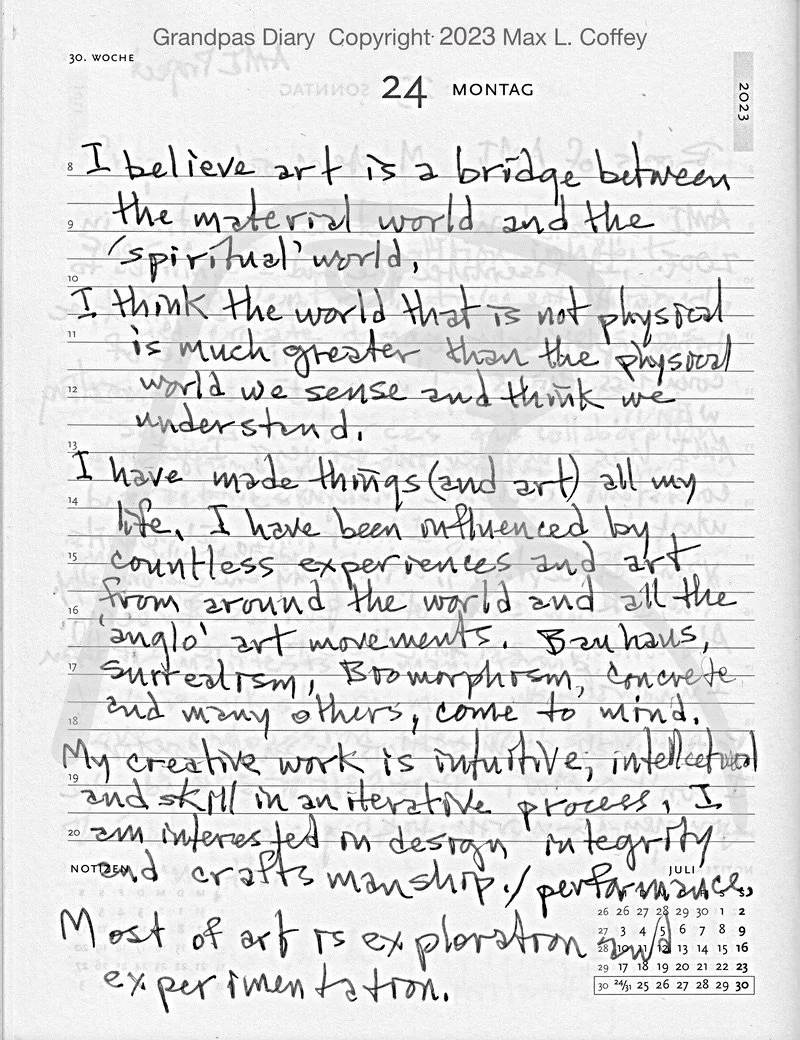 Grandpas Diary Copyright 2023 Max L. Coffey
30. WOCHE
24 MONTAG
2023
8 I believe art is a bridge between
the material world and the
9
'spiritual' world.
10
I think the world that is not physical
11
is much greater than the physical
12 world we sense and think we
understand.
13
I have made things (and art) all my
14
life. I have been influenced by
15 countless experiences and art
from around the world and all the
16
'anglo' art movements. Bauhaus,
17 Surrealism, Biomorphism, Concrete
and many others, come to mind.
18
My creative work is intuitive, intellectual
19
and skill in an iterative process. I
20 am interested in design integrity
NOTIZEN and crafts manship. / performance.
JULI
Most of art is exploration and
experimentation.
26 26 27 28 29 30 1 2
27 3 4 5 6 7 8 9
28 10 11 12 13 14 15 16
29 17 18 19 20 21 22 23
30 24/31 25 26 27 28 29 30